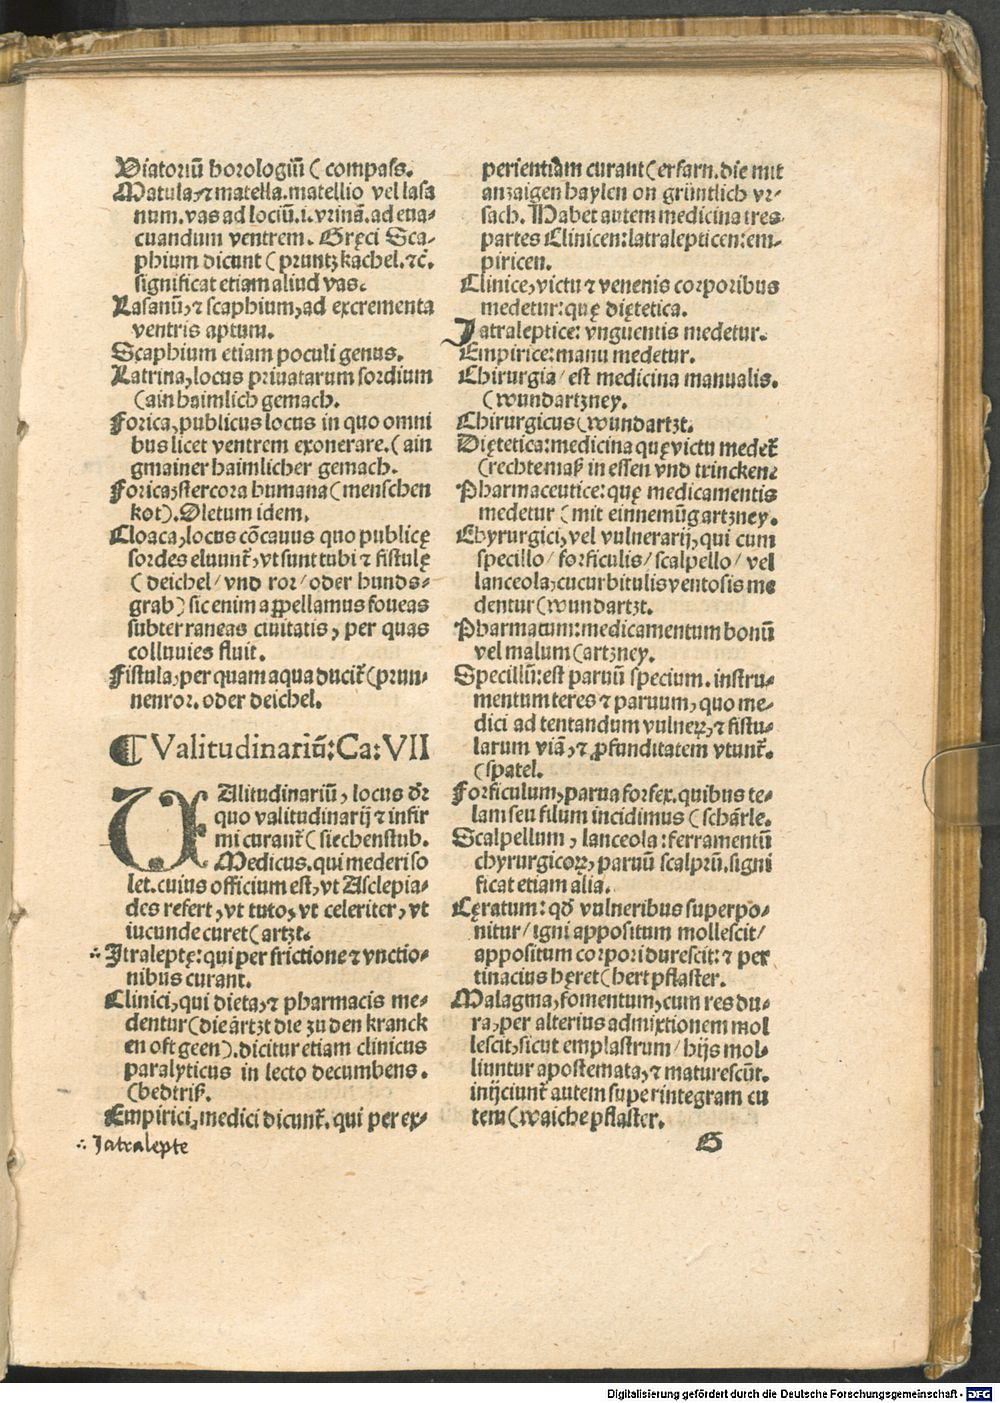 Viatoriũ horologiũ ( compaſs.
Matula, ⁊ matella. matellio vel laſa
num. vas ad lociũ. i. vrinã. ad eua⸗
cuandum ventrem. Gręci Sca⸗
phium dicunt ( pruntzkachel. ⁊c̃.
ſignificat etiam aliud vas.
Laſanũ, ⁊ scaphium, ad excrementa
ventris aptum.
Scaphium etiam poculi genus.
Latrina, locus priuatarum ſordium
( ain haimlich gemach.
Forica, publicus locus in quo omni
bus licet ventrem exonerare. ( ain
gmainer haimlicher gemach.
Forica: stercora humana ( menſchen
kot). Oletum idem.
Cloaca, locus cõcauus quo publicę
ſordes eluunt̃, vt ſunt tubi ⁊ fiſtulę
( deichel / vnd ror / oder hunds⸗
grab) ſic enim aꝑpellamus foueas
ſubterraneas ciuitatis, per quas
colluuies fluit.
Fiſtula, per quam aqua ducit̃ ( prun⸗
nenror. oder deichel.
¶ Valitudinariũ: Ca: VII
VAlitudinariũ, locus ĩ
quo valitudinarij ⁊ infir
mi curant̃ ( ſiechenſtub.
Medicus. qui mederi ſo
let. cuius officium eſt, vt Aſclepia⸗
des refert, vt tuto, vt celeriter, vt
iucunde curet ( artzt.
∴ Jtraleptę: qui per frictione ⁊ vnctio⸗
nibus curant.
Clinici, qui dieta, ⁊ pharmacis me⸗
dentur ( die ärtzt die zu den kranck
en oft geen). dicitur etiam clinicus
paralyticus in lecto decumbens.
( bedtriß.
Empirici, medici dicunt̃. qui per ex⸗
∴ Jatralepte
perientiam curant ( erfarn. die mit
anzaigen haylen on gründtlich vr⸗
ſach. Habet autem medicina tres
partes Clinicen: Iatralepticen: em⸗
piricen.
Clinice, victu ⁊ venenis corporibus
medetur: quę diętetica.
Jatraleptice: vnguentis medetur.
Empirice: manu medetur.
Chirurgia / eſt medicina manualis.
( wundartzney.
Chirurgicus ( wundartzt.
Diętetica: medicina quę victu medet̃
( rechte maß in eſſen vnd trincken:
Pharmaceutice: quę medicamentis
medetur ( mit einnemũg artzney.
Chyrurgici, vel vulnerarij, qui cum
ſpecillo / forficulis / ſcalpello / vel
lanceola, cucurbitulis ventoſis me
dentur ( wundartzt.
Pharmacum: medicamentum bonũ
vel malum ( artzney.
Specillũ: eſt paruũ ſpecium. inſtru⸗
mentum teres ⁊ paruum, quo me⸗
dici ad tentandum vulneꝝ, ⁊ fiſtu⸗
larum viã, ⁊ ꝓfunditatem vtunt̃.
( ſpatel.
Forficulum, parua forfex. quibus te⸗
lam ſeu filum incidimus ( ſchärle.
Scalpellum, lanceola: ferramentũ
chyrurgicoꝝ, paruũ ſcalprũ. ſigni
ficat etiam alia.
Cęratum: qđ vulneribus ſuperpo⸗
nitur / igni appoſitum molleſcit /
appoſitum corpori dureſcit: ⁊ per
tinacius hęret ( hert pflaſter.
Malagma, fomentum, cum res du⸗
ra, per alterius admixtionem mol
leſcit, ſicut emplaſtrum / hijs mol⸗
liuntur apoſtemata, ⁊ matureſcũt.
inijciunt̃ autem ſuper integram cu
tem ( waiche pflaſter.
G
Digitalisierung gefördert durch die Deutsche Forschungsgemeinschaft - DFG